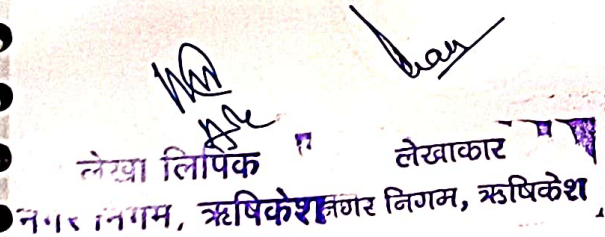 लेखा लिपिक लेखाकार
नगर निगम, ऋषिकेश नगर निगम, ऋषिकेश